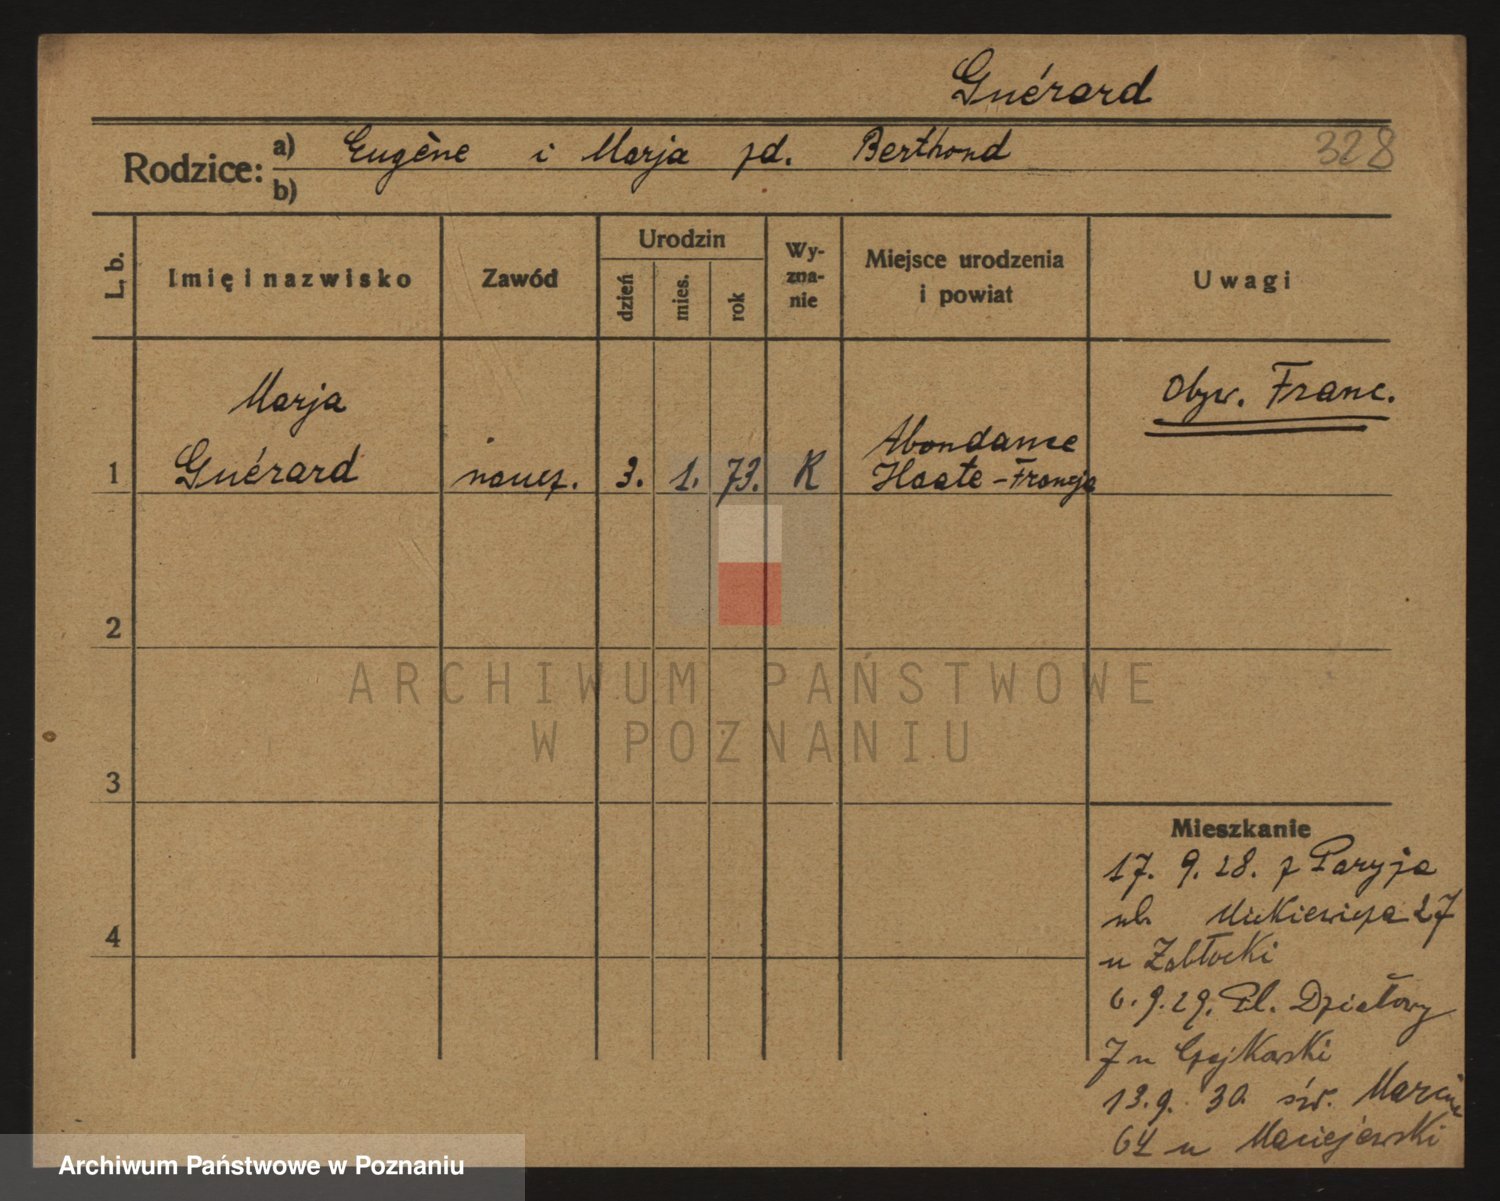 Guérard
328
Rodzice:
a) Eugène i Marja zd. Berthond
b)
L. b.
Imię i nazwisko
Zawód
Urodzin
dzień
mies.
rok
Wy-
zna-
nie
Miejsce urodzenia
i powiat
Uwagi
Marja
Obyw. Franc.
1 Guérard naucz. 3. 1. 73. R
Abondance
Haate - Francja
2
3
4
ARCHIWUM PAŃSTWOWE
W POZNANIU
Mieszkanie
17. 9. 28. z Paryża
ul. Mickiewicza 27
u Zabłocki
6. 9. 29. Pl. Działowy
7 u Czajkowski
13. 9. 30 św. Marcin
64 u Maciejewski
Archiwum Państwowe w Poznaniu